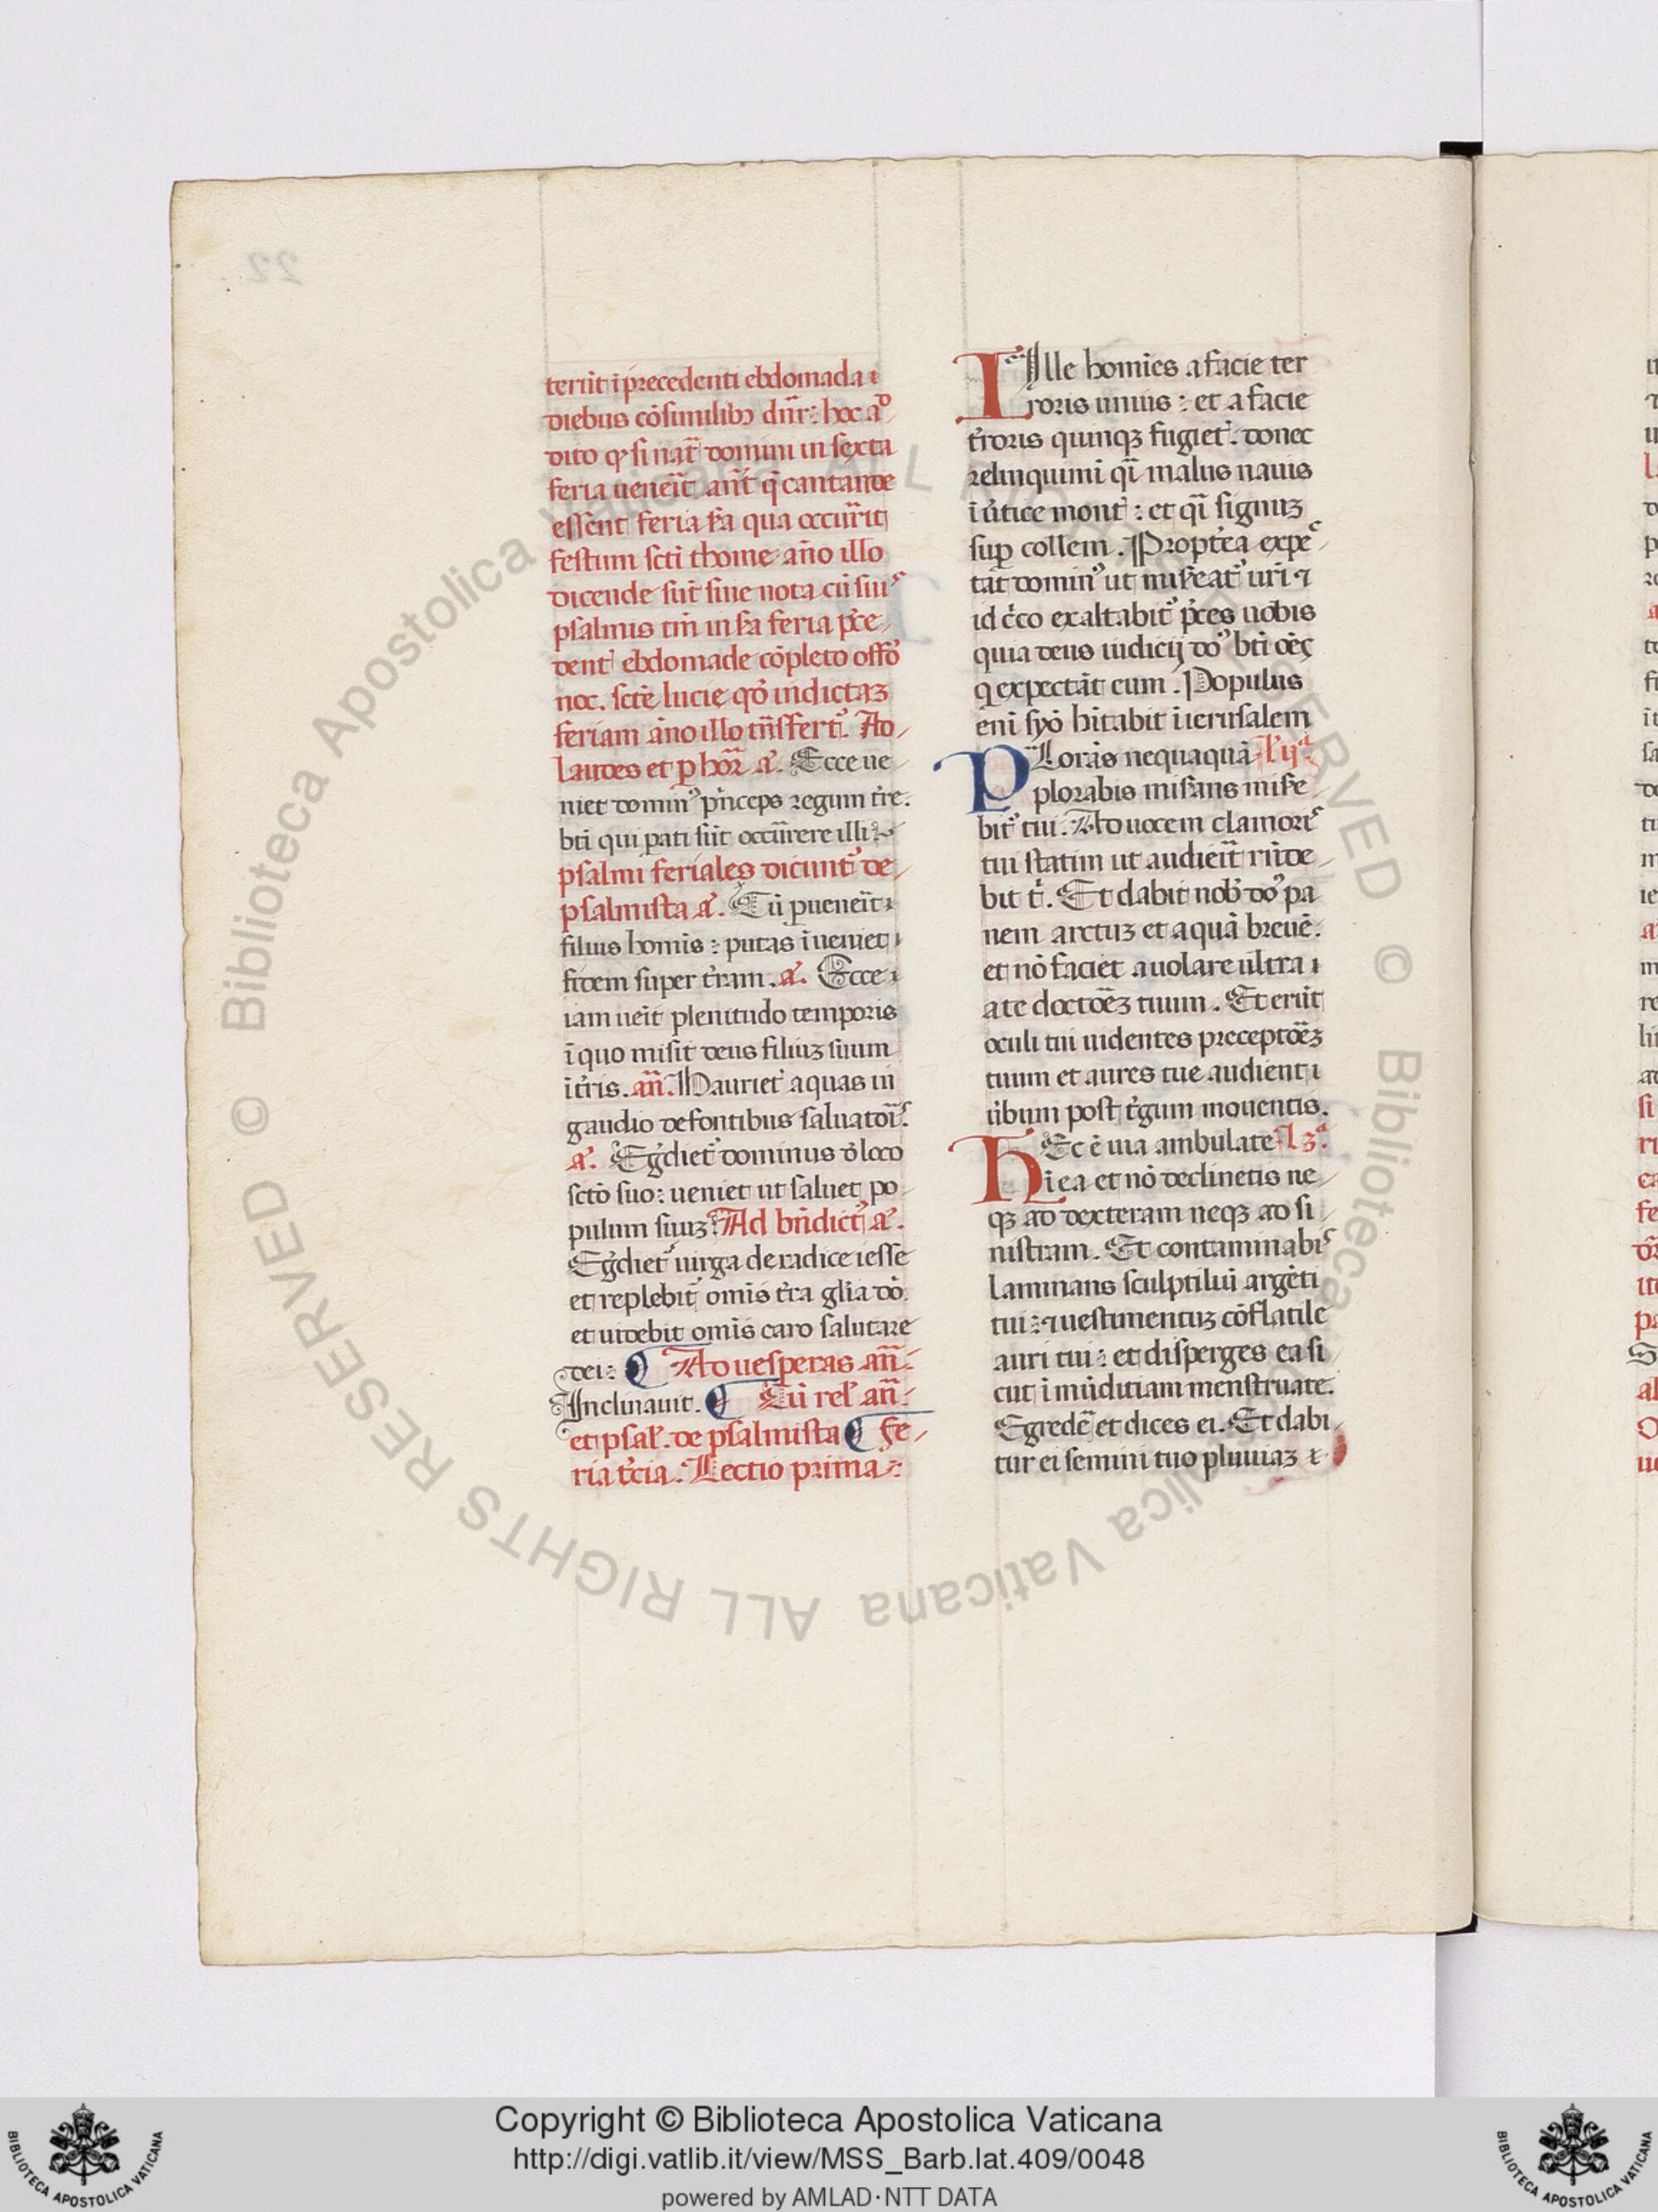 teriit ī precedenti ebdomada ī
diebus cōsimilibꝫ dn̄r: hoc a°
dito ꝙ si nat̄ domini in sexta
feria ueneīt an̄t q̄ cantande
essēnt feria s̄a qua occur̄it
festum sc̄ti thome an̄o illo
dicende sūt sine nota cū suis
psalmis tm̄ in s̄a feria p̄ce
dent ebdomade cōpleto offō
noc. sc̄tē lucie qō indictaꝫ
feriam āno illo tn̄sfert᾽. Ad
laudes et ꝑ hor̄ a᾽. Ecce ue
niet domin᾽ p̄nceps regum tr̄e.
bt̄i qui pati sūt occur̄rere illi
psalmi feriales dicunt᾽ de
psalmista a᾽. Cū ꝑueneīt
filius homīs: putas īueniet
fidem super tr̄am. a᾽. Ecce
iam ueīt plenitudo temporis
ī quo misit deus filiuꝫ suum
ī tr̄is. an̄. Hauriet᾽ aquas in
gaudio de fontibus saluatoīs
a᾽. Eg̊diet᾽ dominus d̄ loco
sc̄tō suo: ueniet ut saluet po
pulum suuꝫ. Ad bn̄dict᾽ a᾽.
Eg̊diet᾽ uirga de radice iesse
et replebit᾽ omīs tr̄a gl̄ia dō.
et uidebit omīs caro salutare
dei: ¶ Ad uesperas an̄.
Inclinauit. ¶ Cū rel᾽ an̄.
et psal᾽. de psalmista ¶ Fe
ria tc̄ia. Lectio prima:
Mille homīes a facie ter
roris unius: et a facie
tr̄oris quinqꝫ fugiet᾽. donec
relinquimī qī malus nauis
ī ūtice mont᾽: et qī signuꝫ
suꝑ collem. Propt̄ea expec
tāt domin᾽ ut mis̄eat᾽ ur̄i ⁊
id c̄co exaltabit᾽ p̄ces uobis
quia deus iudicij dō᾽ bt̄i oēs
q expectāt eum. Populus
enī syō hītabit ī ierusalem
Plorās nequaquā lij.ᵃ
plorabis mis̄ans mis̄e
bit᾽ tui. Ad uocem clamoris
tui statim ut audieīt rn̄de
bit t̄. Et dabit nob᾽ dō᾽ pa
nem arctuꝫ et aquā breuē.
et nō faciet auolare ultra
a te doctōēꝫ tuum. Et erūt
oculi tui uidentes preceptōēꝫ
tuum et aures tue audient
ūbum post tḡum mouentis.
Hec ē uia ambulate l.3.ᵃ
ī ea et nō declinetis ne
qꝫ ad dexteram neqꝫ ad si
nistram. Et contaminabis
laminans sculptiluī argēti
tui: ⁊ uestimentuꝫ cōflatile
auri tui: et disperges ea si
cut īmūditiam menstruate.
Egredē et dices ei. Et dabi
tur ei semini tuo pluuiaꝫ ⁊
22
© Biblioteca Apostolica Vaticana ALL RIGHTS RESERVED © Biblioteca Apostolica Vaticana ALL RIGHTS RESERVED
Copyright © Biblioteca Apostolica Vaticana
http://digi.vatlib.it/view/MSS_Barb.lat.409/0048
powered by AMLAD·NTT DATA
BIBLIOTECA APOSTOLICA VATICANA
BIBLIOTECA APOSTOLICA VATICANA